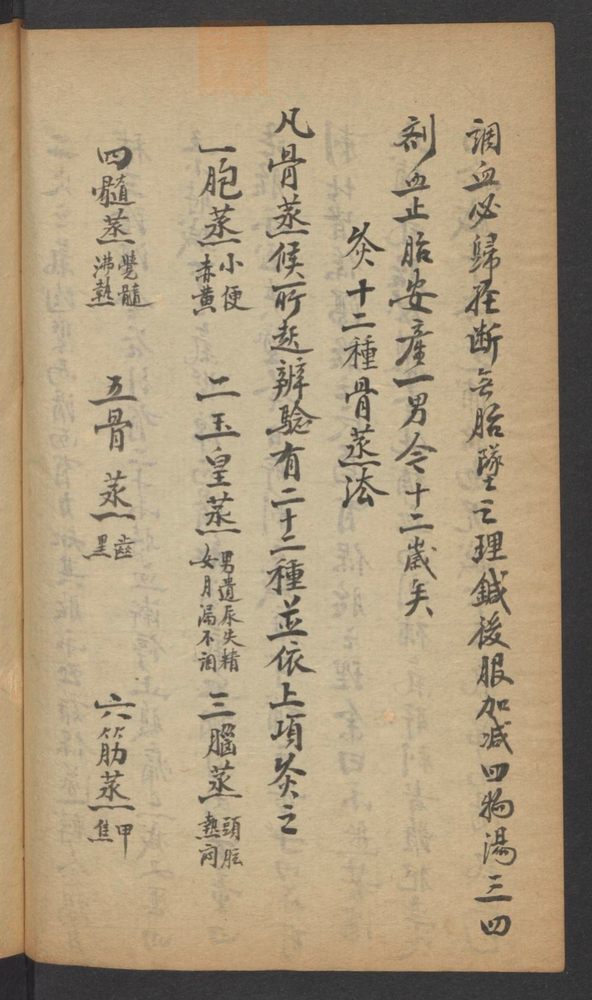 調血必歸経断無胎墜之理鍼後服加减四物湯三四
剤血止胎安産一男今十二歳矣
灸十二種骨蒸法
凡骨蒸候所起辨驗有二十二種並依上項灸之
一胞蒸小便赤黄 二玉皇蒸男遺尿失精女月漏不調 三腦蒸頭眩熱悶
四髓蒸覺髓沸熱 五骨蒸齒黒 六筋蒸甲焦